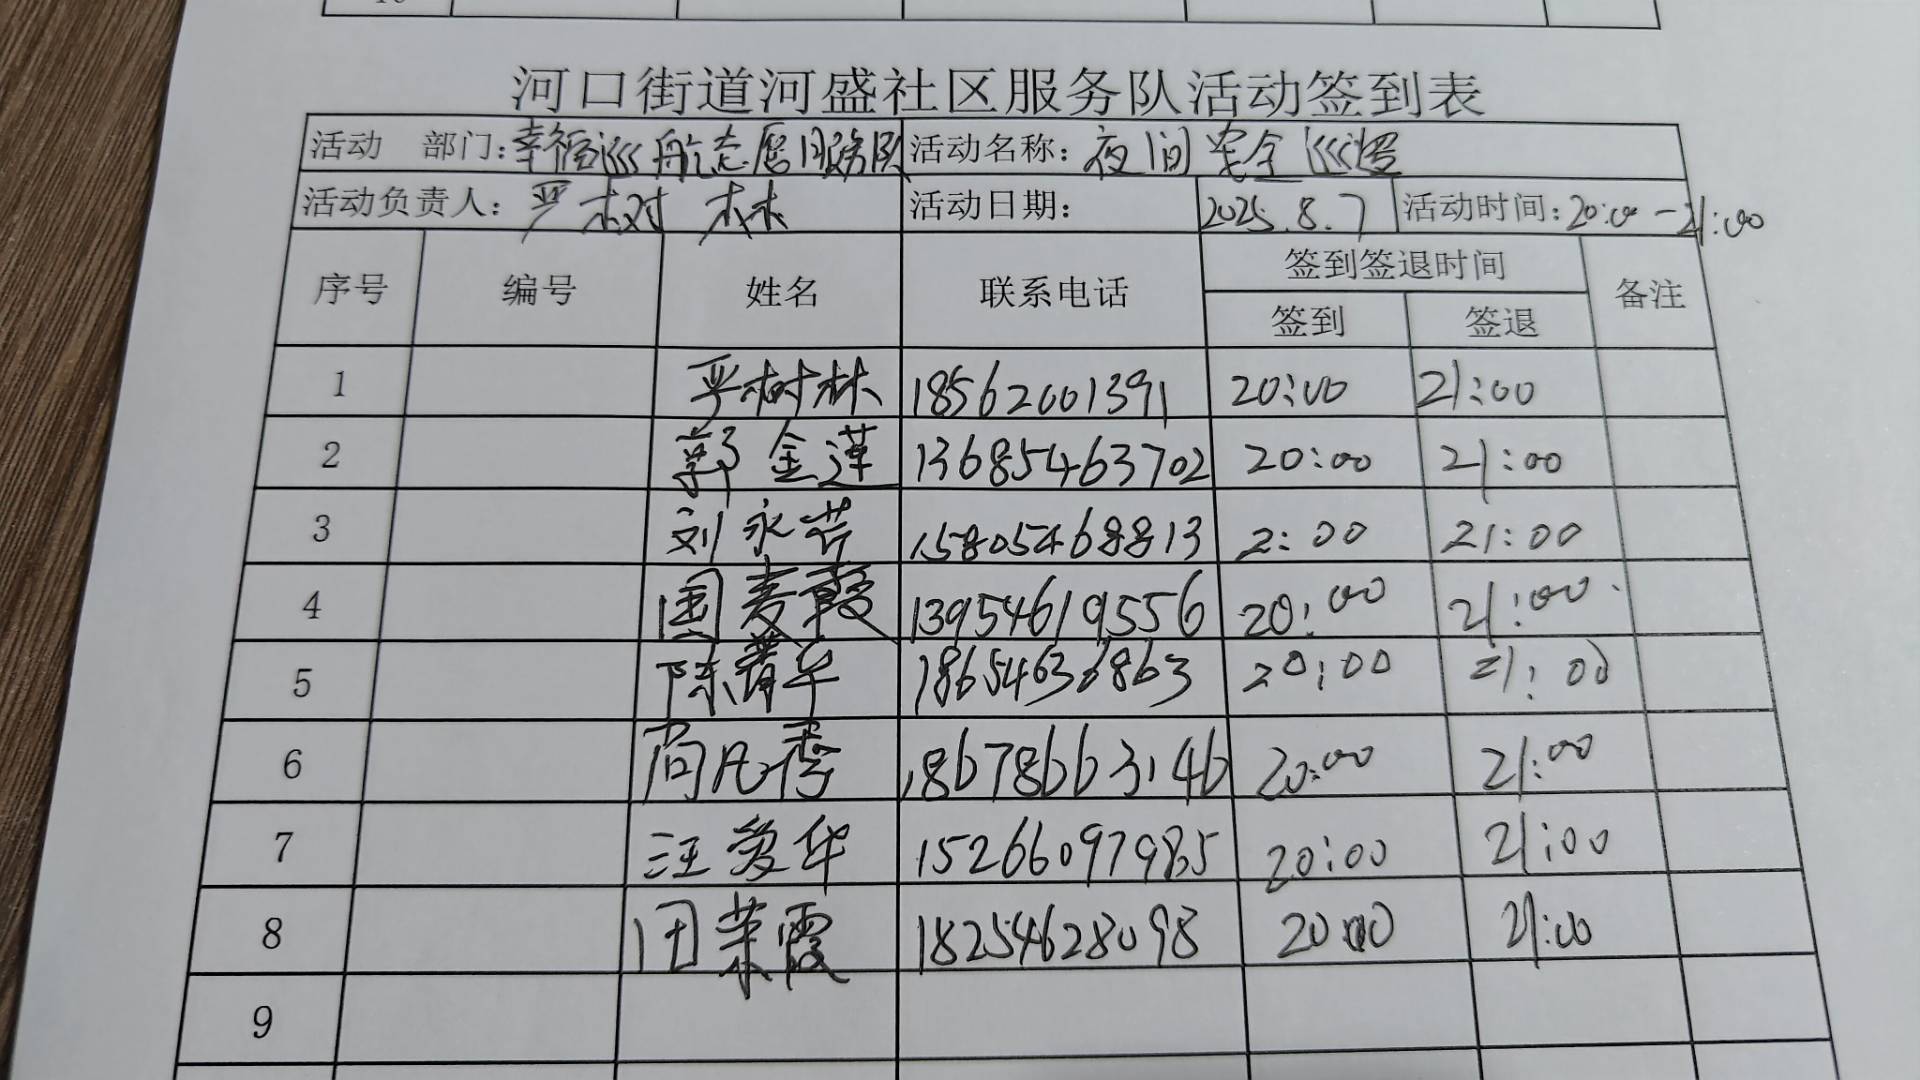 河口街道河盛社区服务队活动签到表
活动 部门：幸福巡航志愿服务队 活动名称：夜间安全巡逻
活动负责人：严树林 活动日期： 2025.8.7 活动时间：20:00-21:00
序号 编号 姓名 联系电话 签到签退时间 备注
签到 签退
1 严树林 18562001391 20:00 21:00
2 郭金莲 13685463702 20:00 21:00
3 刘永芹 15805468813 2:00 21:00
4 国 13954619556 20:00 21:00
5 陈 华 18654636863 20:00 21:00
6 18678663146 20:00 21:00
7 汪爱华 15266097985 20:00 21:00
8 田荣霞 18254628098 20:00 21:00
9